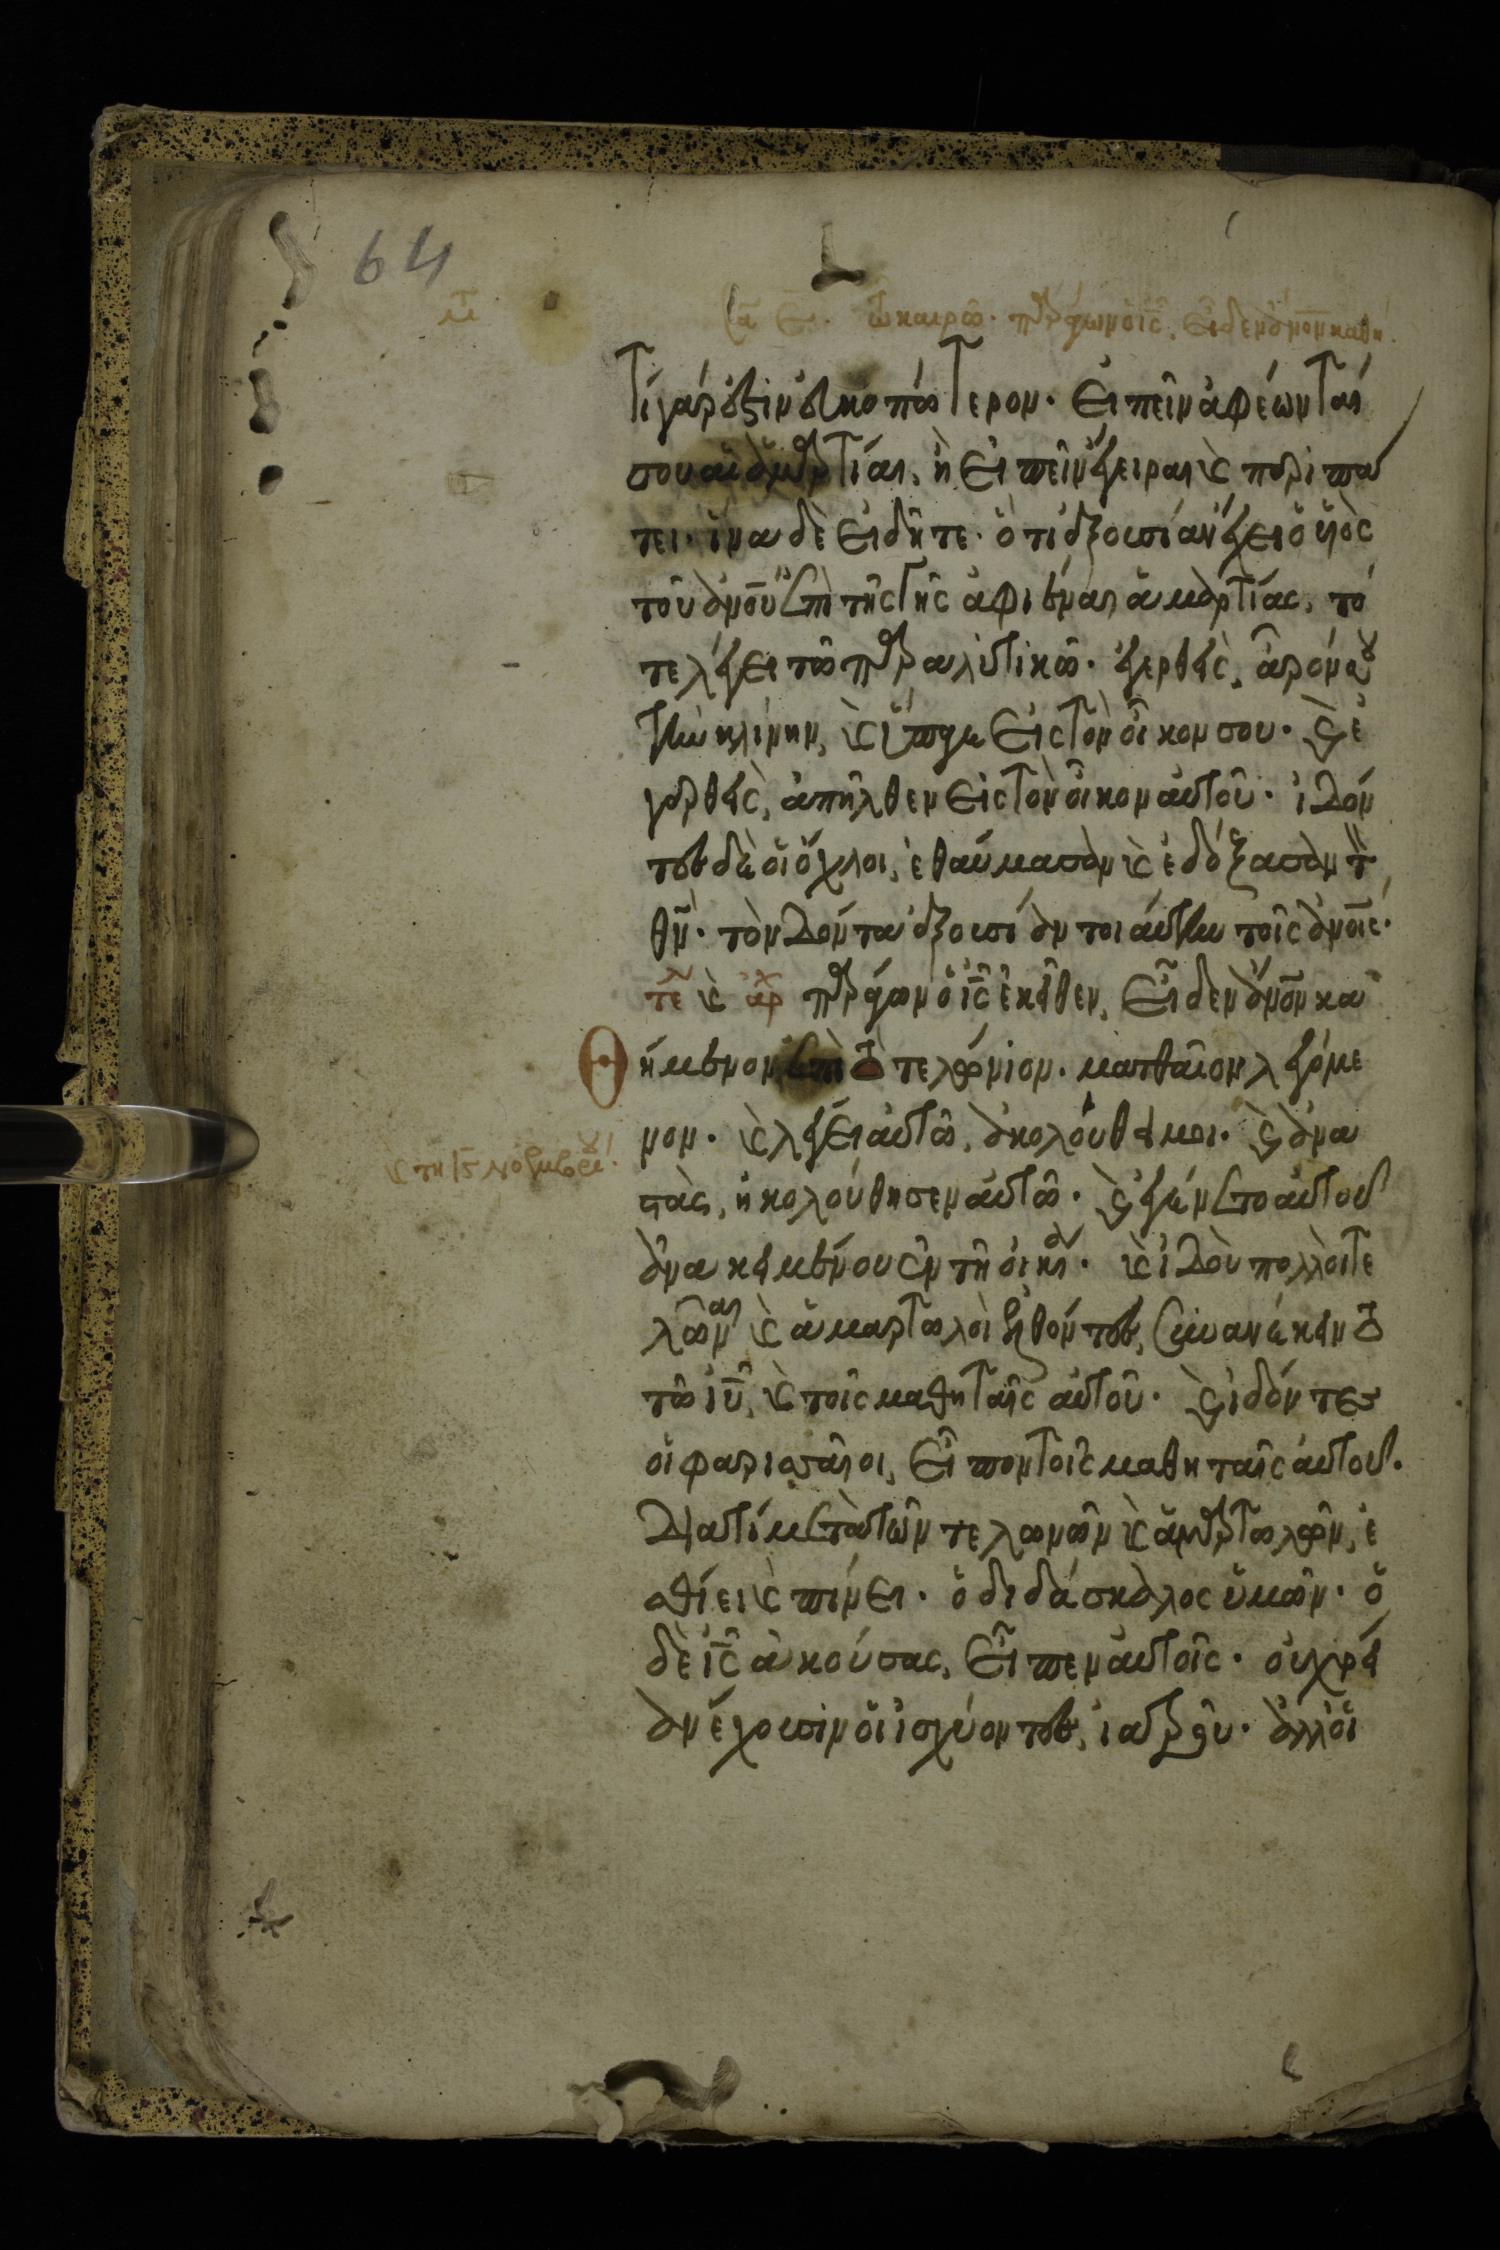 64
τῶ καιρῶ· παράγων ὁ ις, εἶδεν ανον καθή
Τί γάρ ἐστιν εὐκοπώτερον· εἰπεῖν ἀφέωνταί
σου αἱ ἁμαρτίαι, ἢ εἰπεῖν ἔγειραι καὶ περιπά
τει· ἵνα δὲ εἰδῆτε· ὅτι ἐξουσίαν ἔχει ὁ υἱὸς
τοῦ ανου ἐπὶ τῆς γῆς ἀφιέναι ἁμαρτίας, τό
τε λέγει τῶ παραλυτικῶ· ἐγερθεὶς, ἆρόν σου
τὴν κλίνην, καὶ ὕπαγε εἰς τὸν οἶκον σου· καὶ ἐ
γερθεὶς, ἀπῆλθεν εἰς τὸν οἶκον αὐτοῦ· ἰδόν
τες δὲ οἱ ὄχλοι, ἐθαύμασαν καὶ ἐδόξασαν τὸν
θν· τὸν δόντα ἐξουσίαν τοιαύτην τοῖς ανοις·
τε καὶ αρχ παράγων ὁ ις ἐκεῖθεν, εἶδεν ανον κα
θήμενον ἐπὶ τὸ τελώνιον· ματθαῖον λεγόμε
νον· καὶ λέγει αὐτῶ, ἀκολούθει μοι· καὶ ἀνα
στὰς, ἠκολούθησεν αὐτῶ· καὶ ἐγένετο αὐτοῦ
ἀνακειμένου ἐν τῆ οἰκία· καὶ ἰδοὺ πολλοὶ τε
λῶναι καὶ ἁμαρτωλοὶ ἐλθόντες, συνανέκειντο
τῶ ιυ, καὶ τοῖς μαθηταῖς αὐτοῦ· καὶ ἰδόντες
οἱ φαρισαῖοι, εἶπον τοῖς μαθηταῖς αὐτοῦ·
Διατί μετὰ τῶν τελωνῶν καὶ ἁμαρτωλῶν, ἐ
σθίει καὶ πίνει· ὁ διδάσκαλος ὑμῶν· ὁ
δὲ ις ἀκούσας, εἶπεν αὐτοῖς· οὐ χρεί
αν ἔχουσιν οἱ ἰσχύοντες, ἰατροῦ· ἀλλ' οἱ